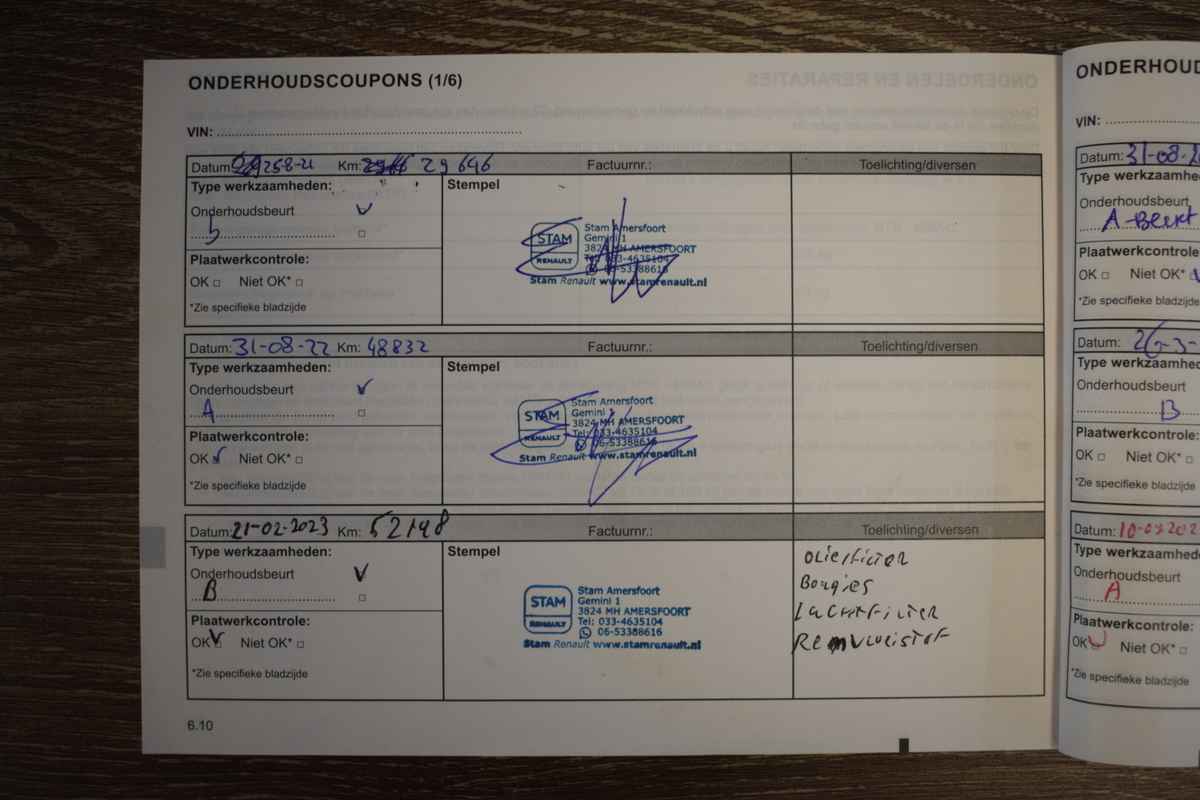 ONDERHOUDSCOUPONS (1/6)
VIN:
Datum: 25-8-21 Km: 29 646 Factuurnr.: Toelichting/diversen
Type werkzaamheden: Stempel
Onderhoudsbeurt
b
Plaatwerkcontrole:
OK Niet OK*
*Zie specifieke bladzijde
STAM RENAULT
Stam Amersfoort
Gemini 1
3824 MH AMERSFOORT
Tel: 033-4635104
06-53388616
Stam Renault www.stamrenault.nl
Datum: 31-08-22 Km: 48832 Factuurnr.: Toelichting/diversen
Type werkzaamheden: Stempel
Onderhoudsbeurt
A
Plaatwerkcontrole:
OK Niet OK*
*Zie specifieke bladzijde
STAM RENAULT
Stam Amersfoort
Gemini 1
3824 MH AMERSFOORT
Tel: 033-4635104
06-53388616
Stam Renault www.stamrenault.nl
Datum: 21-02-2023 Km: 52148 Factuurnr.: Toelichting/diversen
Type werkzaamheden: Stempel
Onderhoudsbeurt
B
Plaatwerkcontrole:
OK Niet OK*
*Zie specifieke bladzijde
STAM RENAULT
Stam Amersfoort
Gemini 1
3824 MH AMERSFOORT
Tel: 033-4635104
06-53388616
Stam Renault www.stamrenault.nl
Oliefilter
Bougies
Luchtfilter
Remvloeistof
6.10
ONDERHOUD
VIN:
Datum: 31-08-2
Type werkzaamhe
Onderhoudsbeurt
A-Beurt
Plaatwerkcontrole:
OK Niet OK*
*Zie specifieke bladzijde
Datum: 26-3-
Type werkzaamhe
Onderhoudsbeurt
B
Plaatwerkcontrole:
OK Niet OK*
*Zie specifieke bladzijde
Datum: 10-03-202
Type werkzaamhede
Onderhoudsbeurt
A
Plaatwerkcontrole:
OK Niet OK*
*Zie specifieke bladzijde